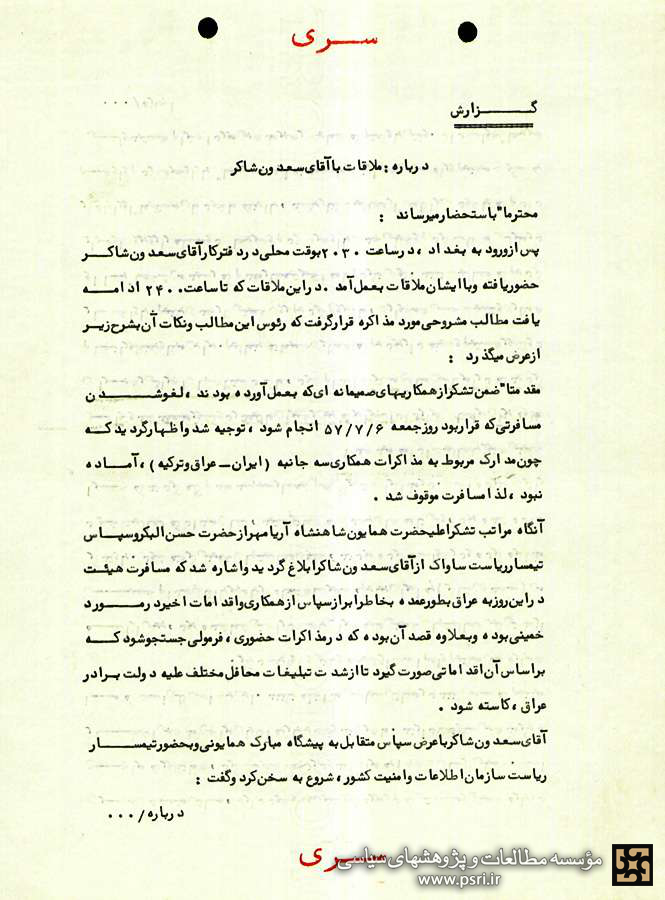 سری
گزارش
درباره : ملاقات با آقای سعدون شاکر
محترما" باستحضار میرساند :
پس از ورود به بغداد ، در ساعت ۲۰۳۰ بوقت محلی در دفتر کار آقای سعدون شاکر
حضور یافته و با ایشان ملاقات بعمل آمد . در این ملاقات که تا ساعت ۲۴۰۰ ادامه
یافت مطالب مشروحی مورد مذاکره قرار گرفت که رئوس این مطالب و نکات آن بشرح زیر
از عرض میگذرد :
مقدمتا" ضمن تشکر از همکاریهای صمیمانه ای که بعمل آورده بودند ، لغو شدن
مسافرتی که قرار بود روز جمعه ۵۷/۷/۶ انجام شود ، توجیه شد و اظهار گردید که
چون مدارک مربوط به مذاکرات همکاری سه جانبه ( ایران ـ عراق و ترکیه ) ، آماده
نبود ، لذا مسافرت موقوف شد .
آنگاه مراتب تشکر اعلیحضرت همایون شاهنشاه آریامهر از حضرت حسن البکر و سپاس
تیمسار ریاست ساواک از آقای سعدون شاکر ابلاغ گردید و اشاره شد که مسافرت هیئت
در این روز به عراق بطور عمده بخاطر ابراز سپاس از همکاری و اقدامات اخیر در مورد
خمینی بوده و بعلاوه قصد آن بوده که در مذاکرات حضوری ، فرمولی جستجو شود که
بر اساس آن اقداماتی صورت گیرد تا از شدت تبلیغات محافل مختلف علیه دولت برادر
عراق ، کاسته شود .
آقای سعدون شاکر با عرض سپاس متقابل به پیشگاه مبارک همایونی و بحضور تیمسار
ریاست سازمان اطلاعات و امنیت کشور ، شروع به سخن کرد و گفت :
درباره / ۰۰۰
سری
مؤسسه مطالعات و پژوهشهای سیاسی
www.psri.ir